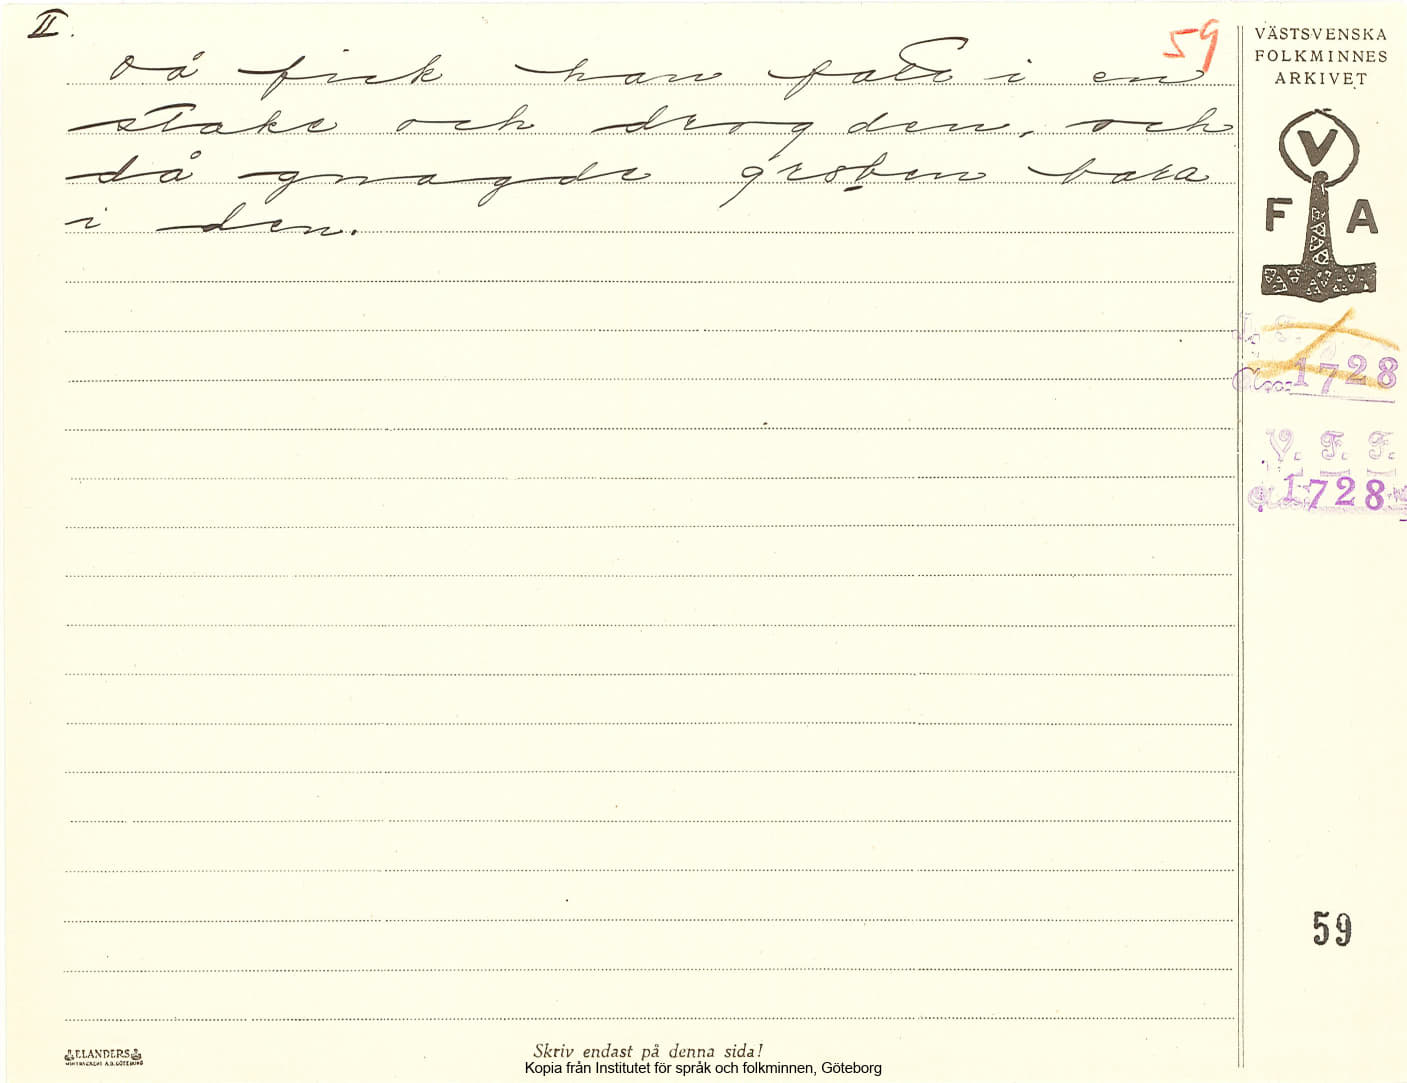 II.
59
då fick han fatt i en
stake och drog den, och
då gnagde gröben bara
i den.
VÄSTSVENSKA
FOLKMINNES
ARKIVET
V
F A
1728
V. F. F.
1728
59
ELANDERS
Skriv endast på denna sida!
Kopia från Institutet för språk och folkminnen, Göteborg